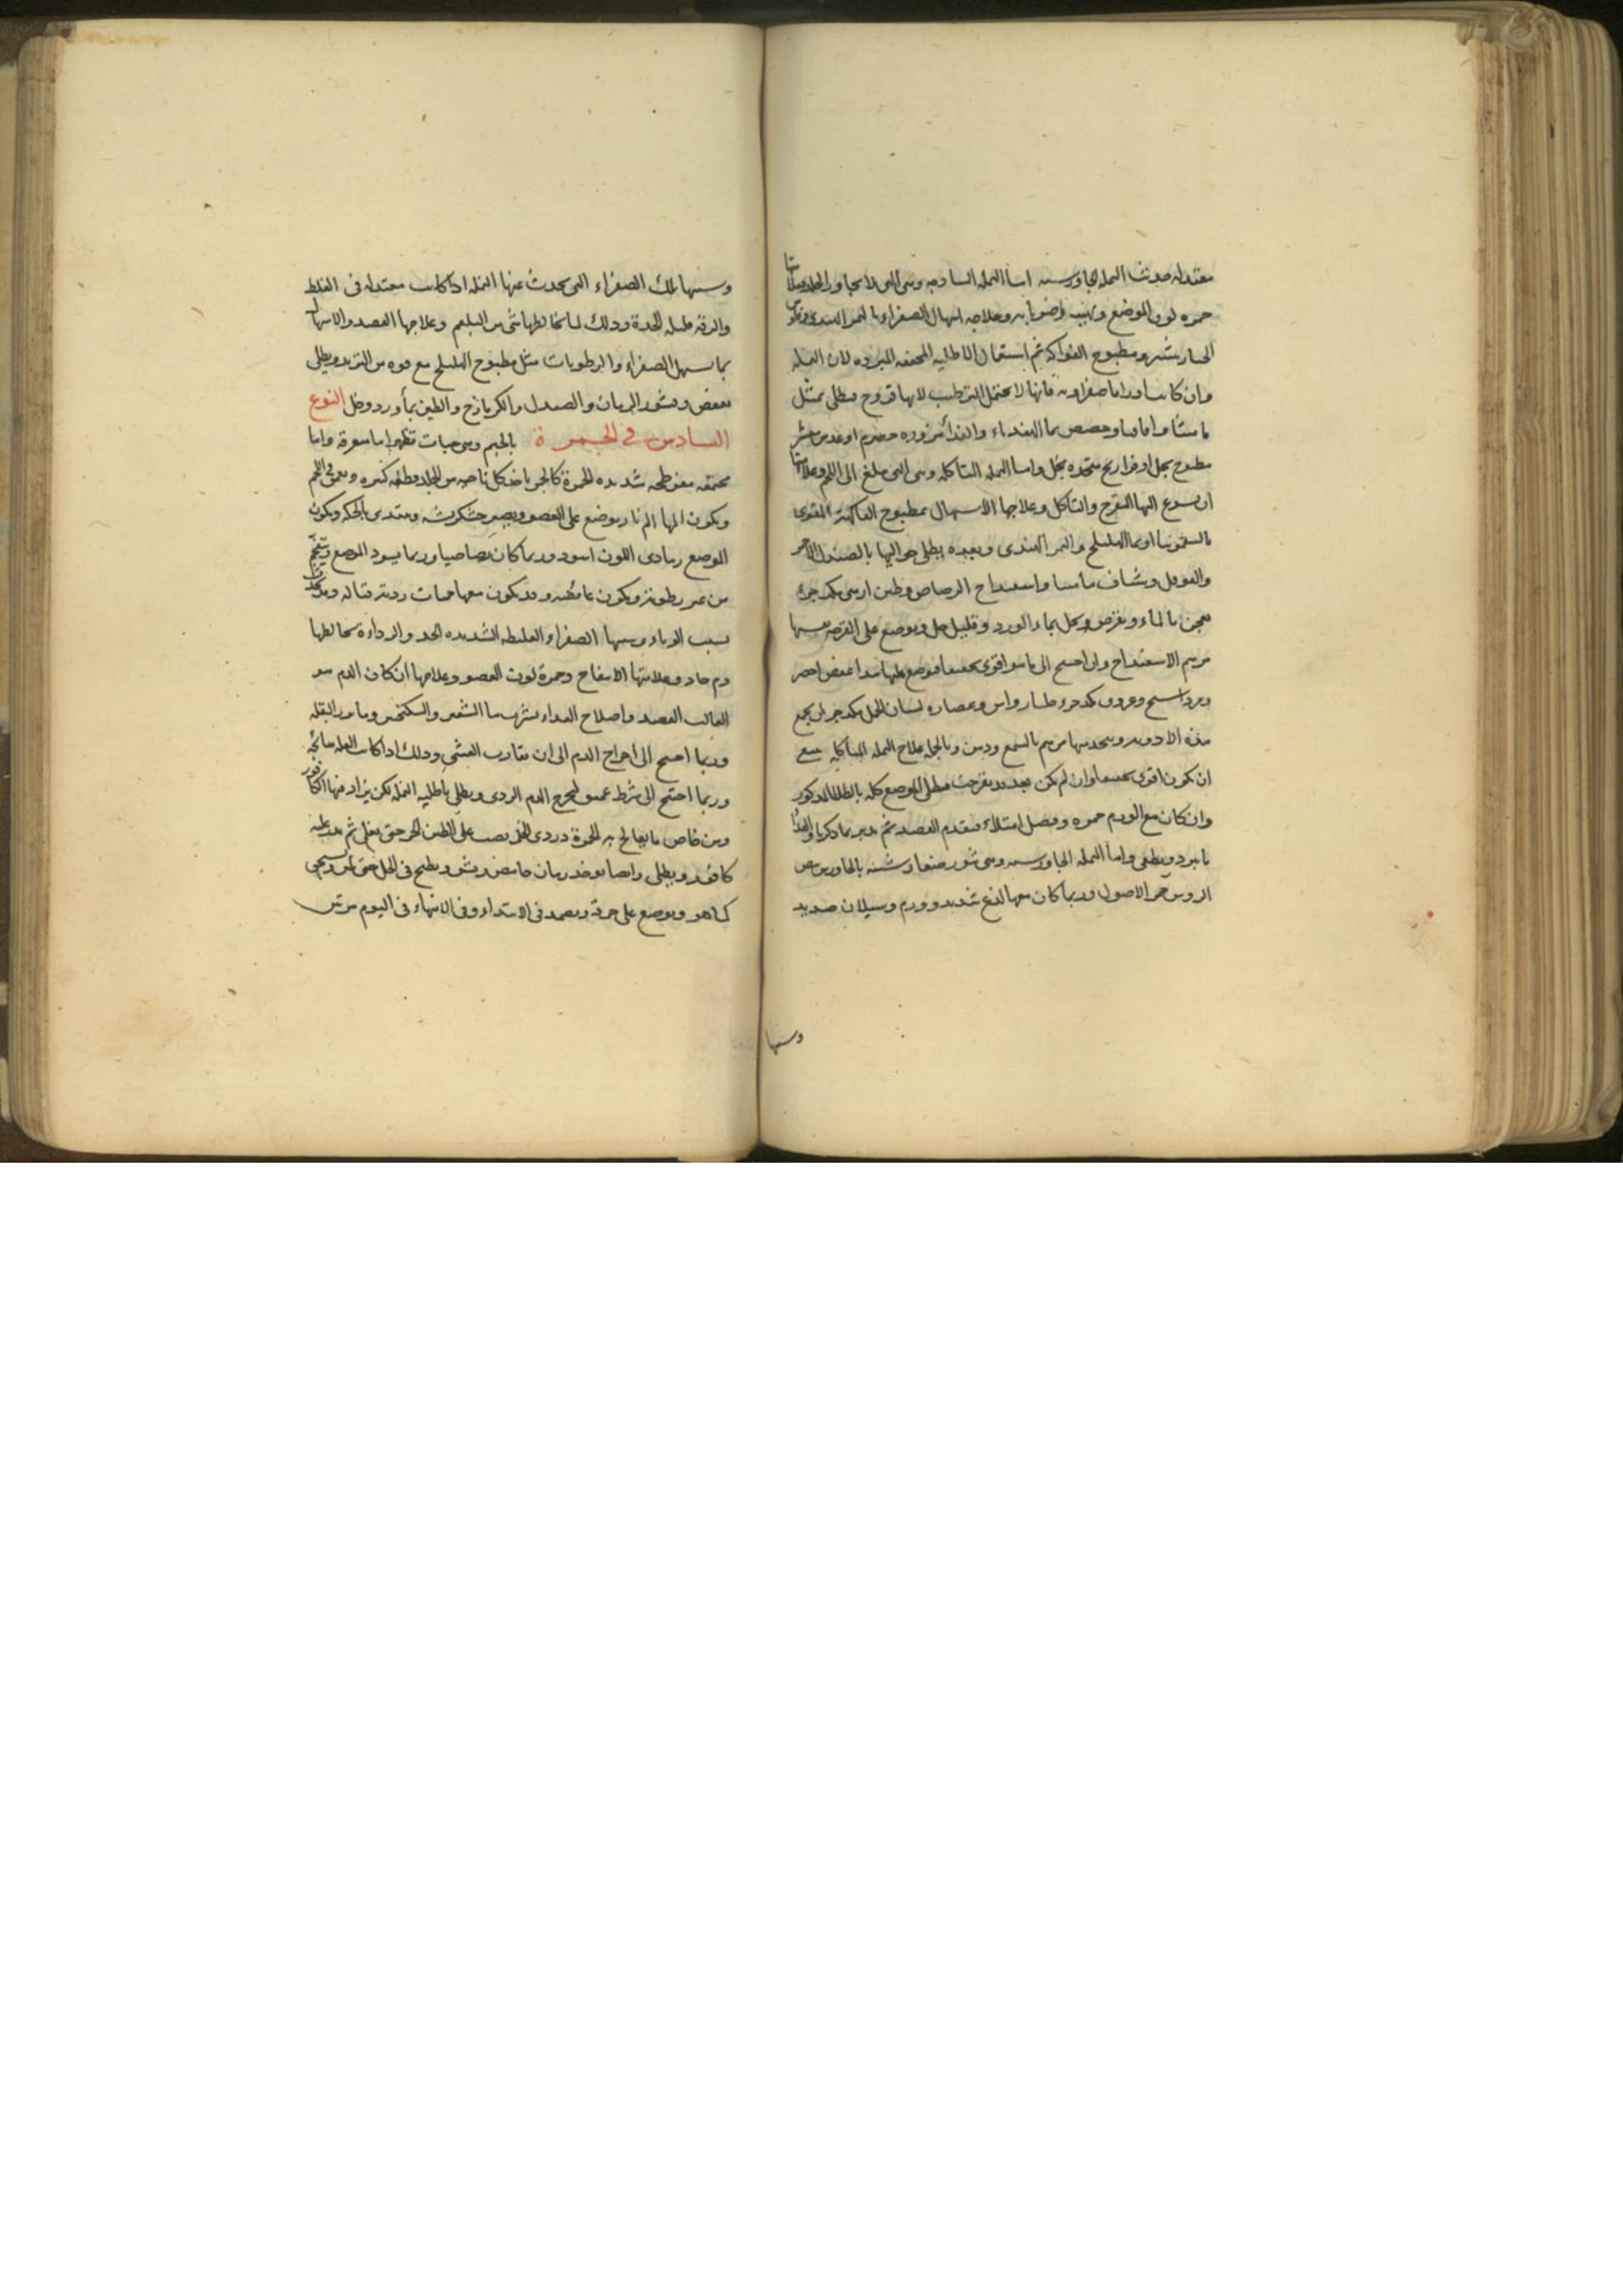 معتدله حدثت النمله الجاورسيه اما النمله الساذجه وهى التى لا تجاوز الجلد وعلامتها
حمره لون الموضع وعلاجه اسهال الصفراء بالتمر الهندى
الخيارشنبر ومطبوخ الفواكه ثم استعمال الاطليه المجففه المبرده لان النمله
وان كانت اوراما صفراويه فانها لا تحتمل الترطيب لانها قروح فتطلى بمثل
ماميثا واقاقيا وحضض بماء الهندباء والغذاء مزوره حصرم او عدس مقشر
مطبوخ بخل او فراريج متخذه بخل واما النمله المتاكله وهى التى تبلغ الى اللحم وعلامتها
ان يسرع اليها التقرح والتاكل وعلاجها الاسهال بمطبوخ الفاكهة المقوى
بالسقمونيا او بماء الهليلج والتمر الهندى وبعده يطلى حواليها بالصندل الاحمر
والفوفل وشياف ماميثا واسفيداج الرصاص وطين ارمنى مكد جزء
يعجن بالماء ويقرص ويحل بماء الورد وقليل خل ويوضع على القرحه نفسها
مرهم الاسفيداج وان احتيج الى ما هو اقوى تجفيفا فوضع عليها هذا عفص اخضر
ومرداسنج وعروق مكد جزء وعصاره لسان الحمل مكد جزءان يجمع
هذه الادويه ويتخذ منها مرهم بالشمع ودهن وبالجمله علاج النمله المتاكله ينبغى
ان يكون اقوى تجفيفا وان لم يكن بعد قد تقرحت فيطلى الموضع كله بالطلاء المذكور
وان كان مع الورم حمره وفضل امتلاء فيقدم الفصد ثم يدبر بما ذكرنا والغذاء
ما يبرد ويطفى واما النمله الجاورسيه وهى بثور صغار شبيه بالجاورس بيض
الروس حمر الاصول وربما كان معها لذع شديد وورم وسيلان صديد
وسببها
وسببها تلك الصفراء التى يحدث عنها النمله اذا كانت معتدله فى الغلظ
والرقه قليله الحدة وذلك لما يخالطها شى من البلغم وعلاجها الفصد والاسهال
بما يسهل الصفراء والرطوبات مثل مطبوخ الهليلج مع قوه من التربد ويطلى
بعفص وقشور الرمان والصندل والكزمازج والطين بماء ورد وخل النوع
السادس فى الجمرة بالجيم وهى حبات تظهر اما متفرقه واما
مجتمعه مفرطحه شديده الحمرة كالجمر ياخذ كل ناحيه من الجلد قطعه كبيره ويعمق فى اللحم
ويكون المها الم نار يوضع على العضو ويصير خشكريشه ويبتدى بالحكه ويكون
الموضع رمادى اللون اسود وربما كان رصاصيا وربما يسود الموضع ويتفحم
من غير رطوبة ويكون غائصه وقد يكون معها حميات رديه قتاله وقد يحدث
بسبب الوباء وسببها الصفراء الغليظه الشديده الحد والرداءة يخالطها
دم حاد وعلامتها الانتفاخ وحمرة لون العضو وعلاجها ان كان الدم هو
الغالب الفصد واصلاح الغذاء بشرب ماء الشعير والسكنجبين وماء بزر البقله
وربما احتيج الى اخراج الدم الى ان يقارب الغشى وذلك اذا كانت العله هائجه
وربما احتيج الى شرط عميق ليخرج الدم الردى ويطلى باطليه النمله لكن يزاد فيها الكافور
ومن خاص ما يعالج به الجمرة دردى الخل يصب على الطين الحر حتى يغلى ثم يذر عليه
كافور ويطلى وايضا يوخذ رمان حامض ويشق ويطبخ فى الخل حتى يلين ويسحق
كما هو ويوضع على خرقة ويضمد فى الابتداء وفى الانتهاء فى اليوم مرتين